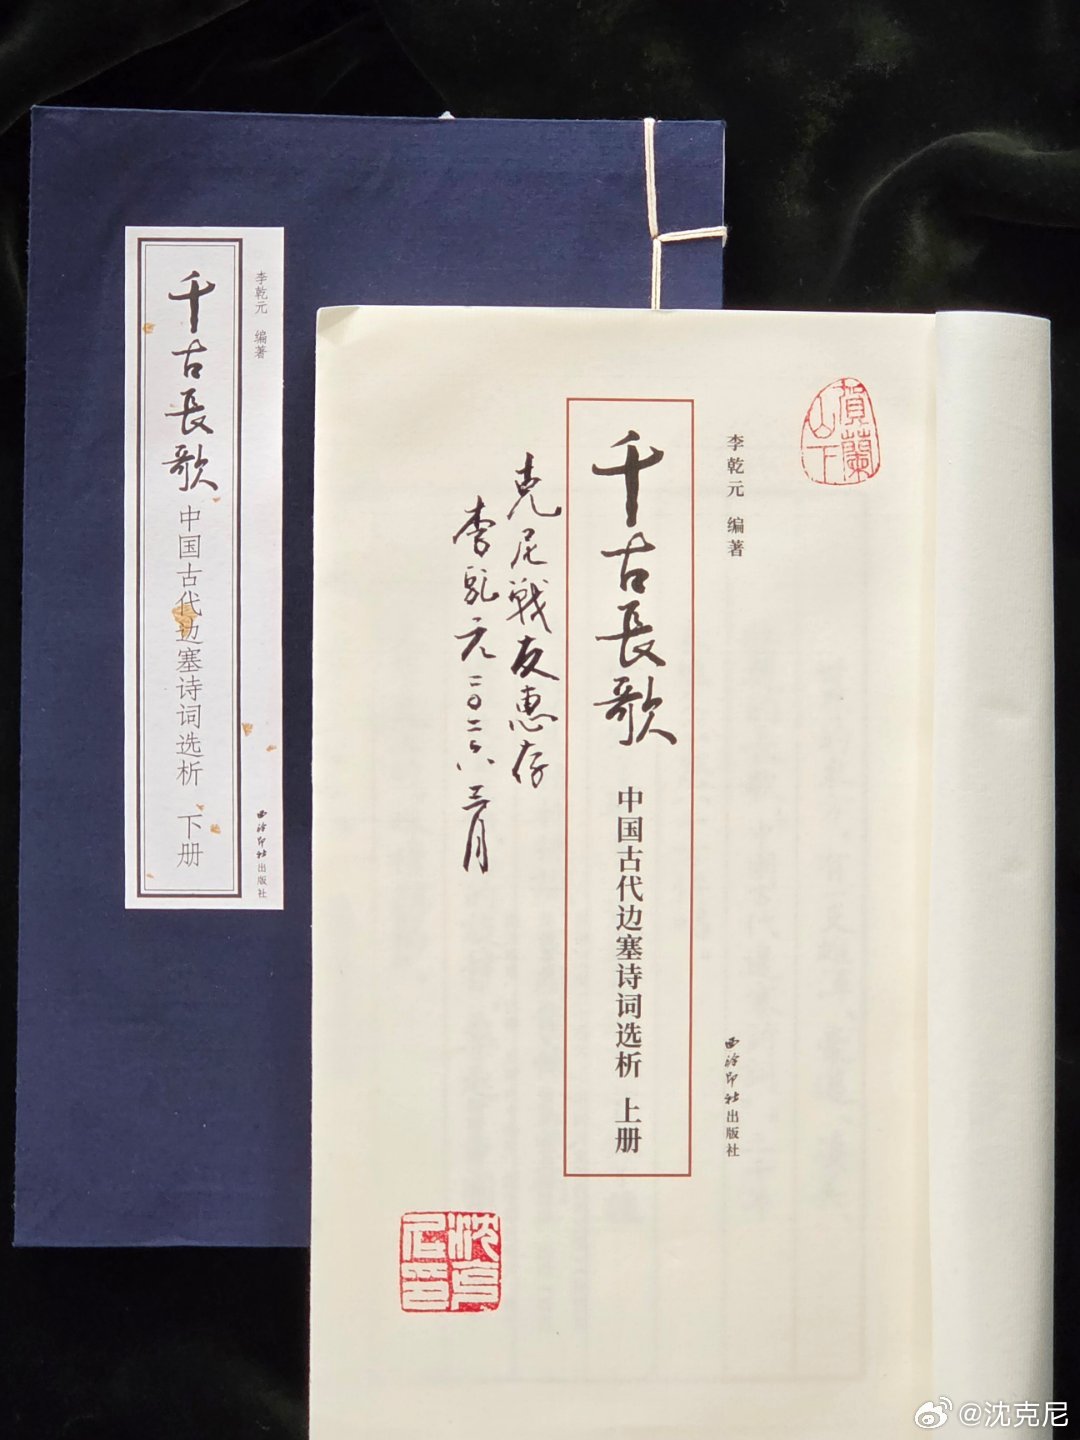 李乾元 编著
千古長歌
中国古代边塞诗词选析 下册
西泠印社出版社
賀蘭山下
李乾元 编著
千古長歌
中国古代边塞诗词选析 上册
西泠印社出版社
克尼戰友惠存
李乾元二〇二六三月
沈克尼印
@沈克尼